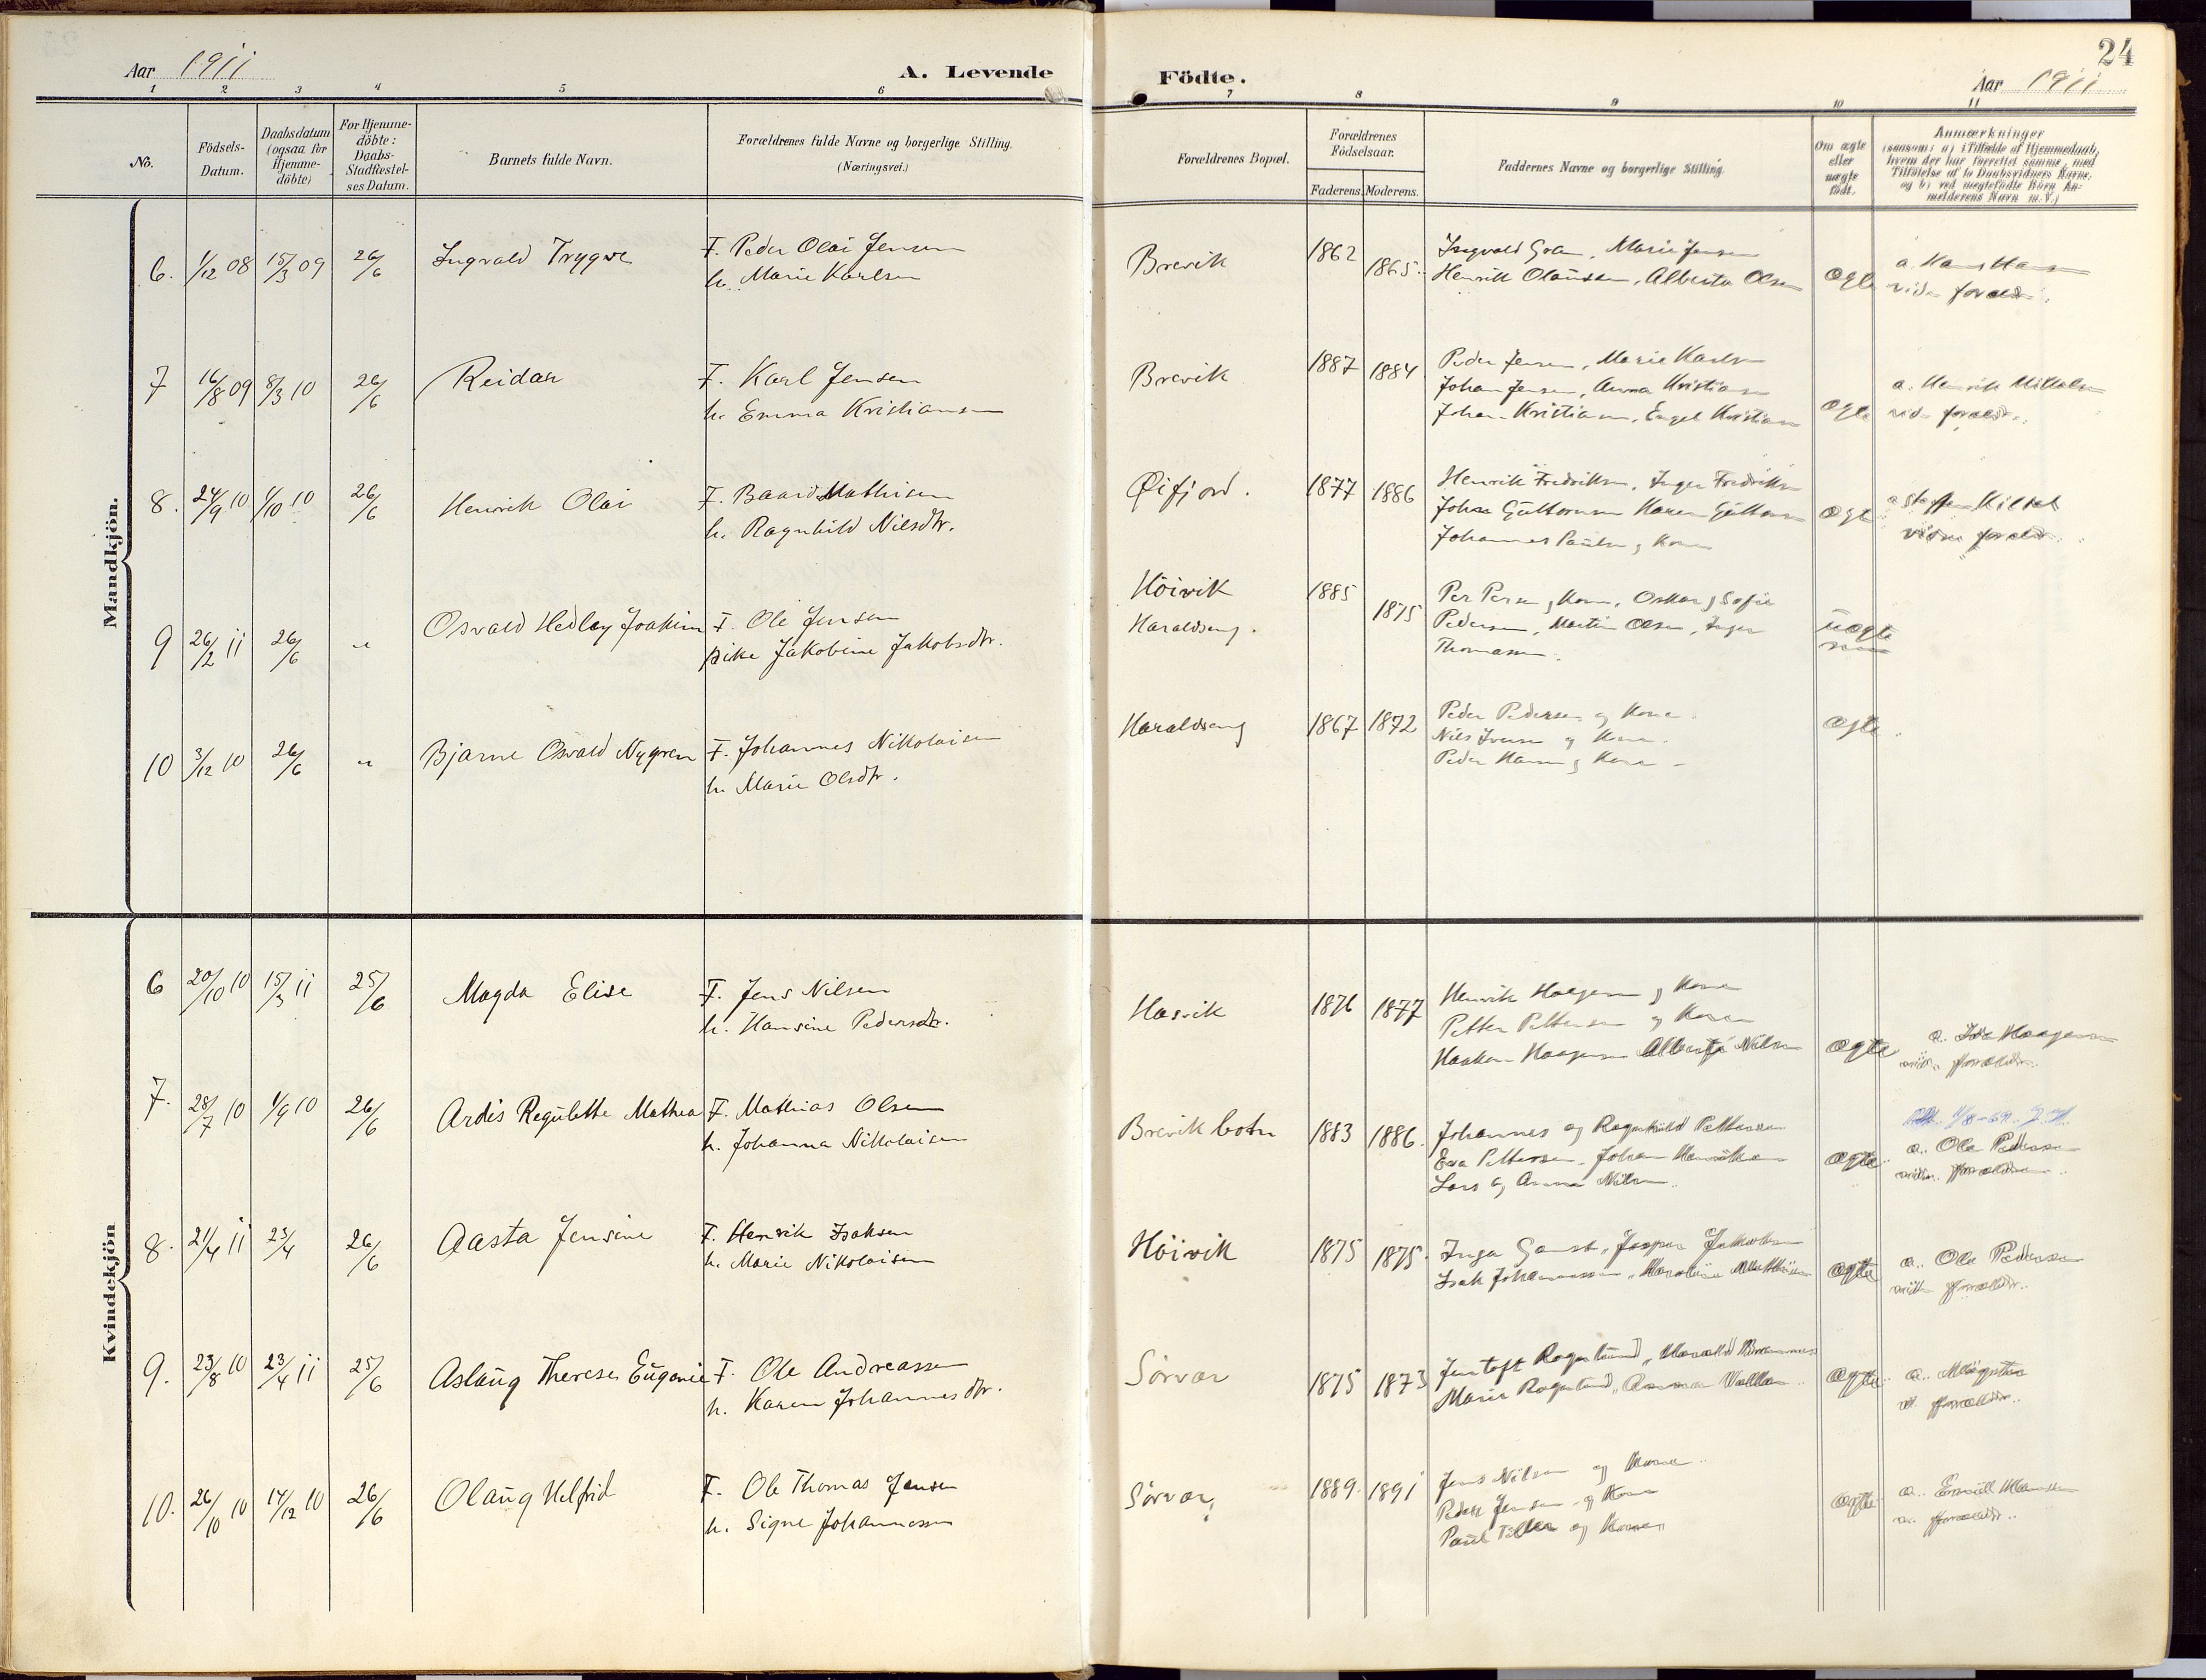 Aar 1911
A. Levende
1 2 3 4 5 6
No.
Födsels-
Datum.
Daabsdatum
(ogsaa for
Hjemme-
döbte)
For Hjemme-
döbte:
Daabs-
Stadfæstel-
ses Datum.
Barnets fulde Navn.
Forældrenes fulde Navne og borgerlige Stilling.
(Næringsvei.)
Mandkjön.
6. 1/12 08 15/3 09 26/6 Ingvald Trygve F. Peder Olai Jensen
h. Marie Karlsen
7 16/8 09 8/3 10 26/6 Reidar F. Karl Jensen
h. Emma Kristiansen
8. 24/9 10 1/10 10 26/6 Henrik Olai F. Baard Mathisen
h. Ragnhild Nilsdtr.
9 26/2 11 26/6 „ Osvald Hedley Joakim F. Ole Jensen
pike Jakobine Jakobsdtr.
10 3/12 10 26/6 „ Bjarne Osvald Nygren F. Johannes Nikolaisen
h. Marie Olsdtr.
Kvindekjön
6 20/10 10 15/3 11 25/6 Magda Elise F. Jens Nilsen
h. Hansine Pedersdtr.
7. 28/7 10 1/9 10 26/6 Ardis Regulette Mathea F. Mathias Olsen
h. Johanna Nikolaisen
8. 21/4 11 23/4 26/6 Aasta Jensine F. Henrik Isaksen
h. Marie Nikolaisen
9. 23/8 10 23/4 11 25/6 Aslaug Therese Eugenie F. Ole Andreassen
h. Karen Johannesdtr.
10. 26/10 10 14/12 10 26/6 Olaug Helfrid F. Ole Thomas Jensen
h. Signe Johannessen
24
Födte.
Aar 1911
7 8 9 10 11
Forældrenes Bopæl.
Forældrenes
Födselsaar.
Faderens. Moderens.
Faddernes Navne og borgerlige Stilling.
Om ægte
eller
uægte
födt.
Anmærkninger
(saasom: a) i Tilfælde af Hjemmedaab,
hvem der har forrettet samme, med
Tilföielse af to Daabsvidners Navne,
og b) ved uægtefödte Börn An-
melderens Navn m.V.)
Brevik 1862 1865. Ingvald Marie Jensen
Henrik Olaussen, Alberta Olsen ægte a. Hans Hansen
Brevik 1887 1884 Peder Jensen, Marie Karlsen
Johan Jensen, Anna Kristiansen
Johan Kristiansen, Engel Kristiansen ægte a. Henrik
Øifjord. 1877 1886 Henrik Fredriksen, Inger Fredriksen
Johan Guttormsen Karen Guttormsen ægte
Johannes Paulsen og Kone
Höivik 1885 Per Persen og Kone, Oskar og Sofie
Haraldseng. 1875 Pedersen, Martin Olsen, Inger uægte
Thomassen.
Haraldseng 1867 1872 Peder Pedersen og Kone ægte.
Nils Iversen og Kone.
Peder Hansen og Kone
Hasvik 1876 1877 Henrik Haagensen og Kone
Petter Pettersen og Kone
Haakon Haagensen Nilsen ægte a. Haagensen
Brevikbotn 1883 1886. Johannes og Ragnhild Pettersen
Eva Pettersen, Johan Henriksen ægte. a. Ole Pedersen
Lars og Anna Nilsen.
Höivik 1875 1875. Inga Jesper Jakobsen
Isak Johannessen, ægte a. Ole Pedersen
Sörvær 1875 1873 Jentoft Rogstrand,
Marie Rogstrand, Anna ægte.
Sörvær 1889. 1891 Jens Nilsen og Kone
Peder Jensen og Kone ægte a. Hansen
Paul Tiller og Kone